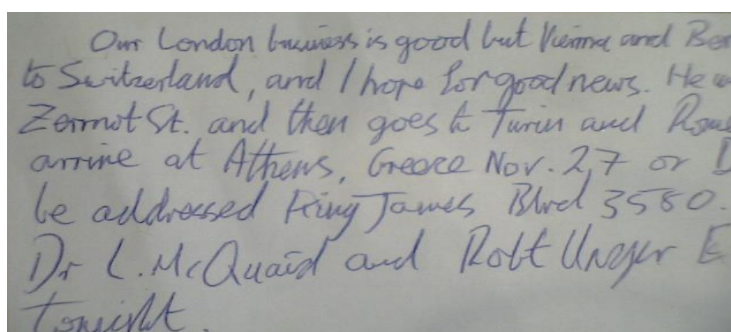 Our London business is good but Vienna and Ber
to Switzerland, and I hope for good news. He w
Zermot St. and then goes to Turin and Rome
arrive at Athens, Greece Nov. 27 or D
be addressed King James Blvd 3580.
Dr L. McQuaid and Robt Unger E
tonight.